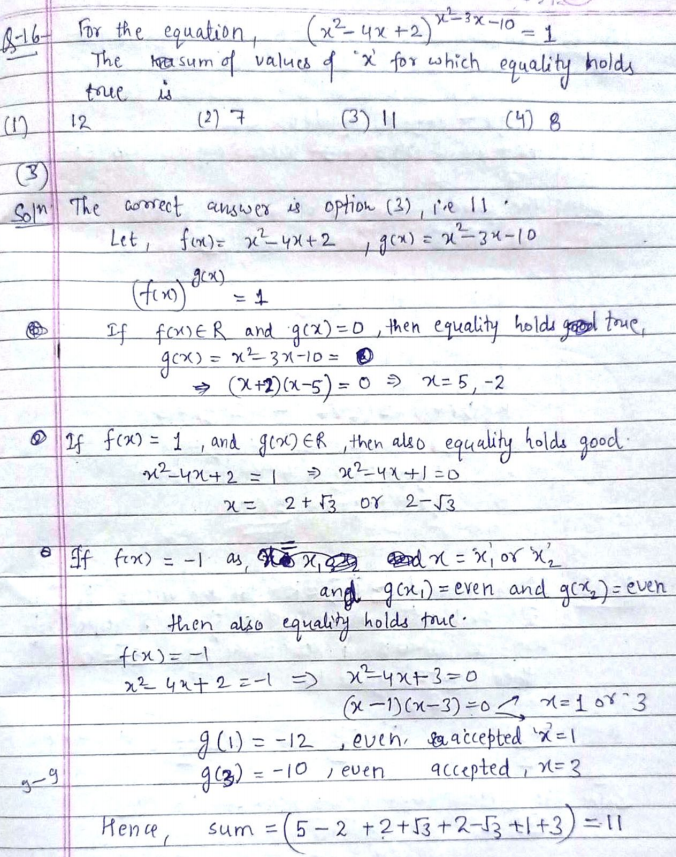 Q-16- For the equation, (x²-4x+2)^(x²-3x-10) = 1
The sum of values of 'x' for which equality holds
true is
(1) 12 (2) 7 (3) 11 (4) 8
(3)
Soln. The correct answer is option (3), i.e 11.
Let, f(x)= x²-4x+2, g(x) = x²-3x-10
(f(x))^g(x) = 1
If f(x)∈R and g(x)=0, then equality holds true,
g(x) = x²-3x-10 =
⇒ (x+2)(x-5) = 0 ⇒ x=5, -2
If f(x) = 1, and g(x)∈R, then also equality holds good.
x²-4x+2 = 1 ⇒ x²-4x+1=0
x = 2+√3 or 2-√3
If f(x) = -1 as, x = 'x₁' or 'x₂'
and g(x₁)=even and g(x₂)=even
then also equality holds true.
f(x)=-1
x² 4x+2 =-1 ⇒ x²-4x+3=0
(x-1)(x-3)=0 x=1 or 3
g(1) = -12, even. accepted 'x'=1
g(3) = -10, even accepted, x=3
9-9
Hence, sum = (5-2+2+√3+2-√3+1+3) = 11